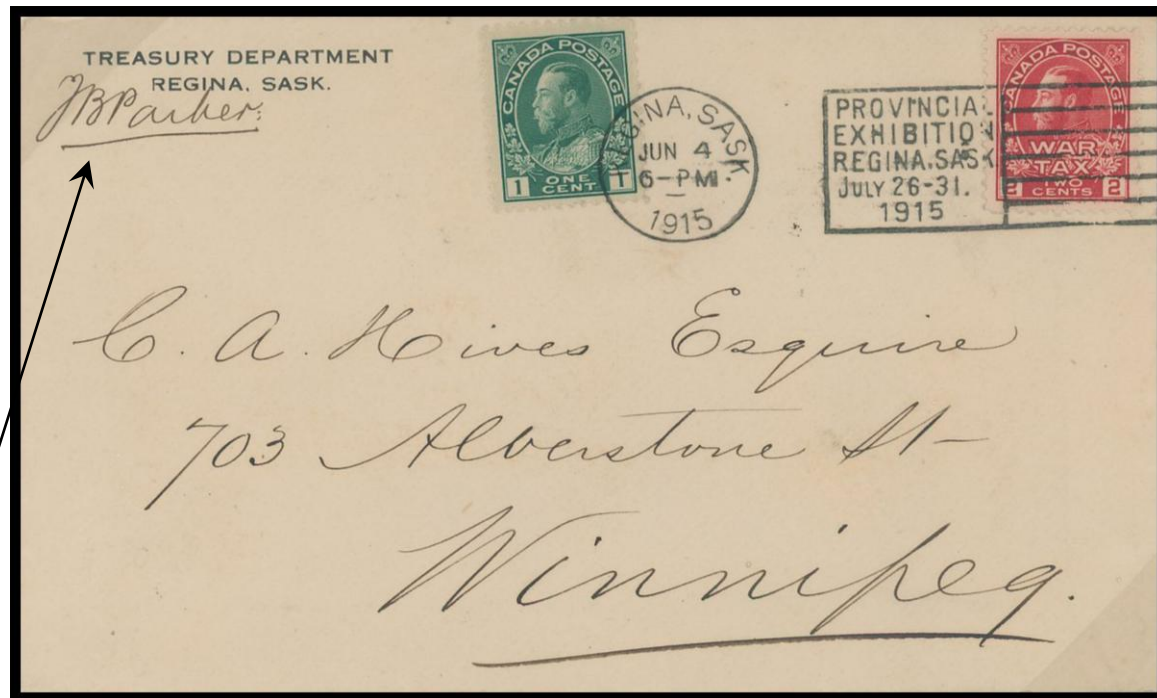 TREASURY DEPARTMENT
REGINA, SASK.
JBParker.
CANADA POSTAGE
1 ONE CENT 1
REGINA, SASK
JUN 4
6-PM
1915
PROVINCIAL
EXHIBITION
REGINA, SASK
JULY 26-31.
1915
CANADA POSTAGE
WAR
TAX
2 TWO CENTS 2
C. A. Hives Esquire
703 Alverstone St-
Winnipeg.